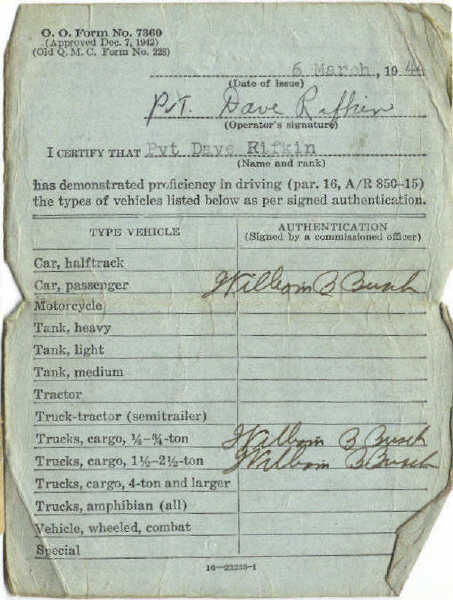 O. O. Form No. 7360
(Approved Dec. 7, 1942)
(Old Q. M. C. Form No. 228)
6 March, 194
(Date of Issue)
Pvt. Dave Rifkin
(Operator's signature)
I CERTIFY THAT Pvt Dave Rifkin
(Name and rank)
has demonstrated proficiency in driving (par. 16, A/R 850–15)
the types of vehicles listed below as per signed authentication.
TYPE VEHICLE AUTHENTICATION
(Signed by a commissioned officer)
Car, halftrack
Car, passenger William B Busch
Motorcycle
Tank, heavy
Tank, light
Tank, medium
Tractor
Truck-tractor (semitrailer)
Trucks, cargo, ¼–¾-ton William B Busch
Trucks, cargo, 1½–2½-ton William B Busch
Trucks, cargo, 4-ton and larger
Trucks, amphibian (all)
Vehicle, wheeled, combat
Special
16—23233-1